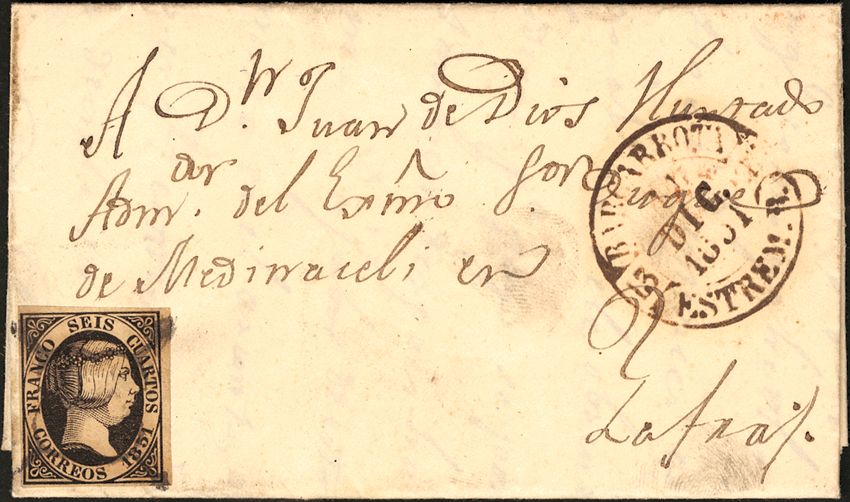 A Dn. Juan de Dios Hurtado
Admdor. del Exmo Sor Duque
de Medinaceli en
Zafra.
DIC.
1851
ESTREM. B.
FRANCO SEIS CUARTOS
CORREOS 1851